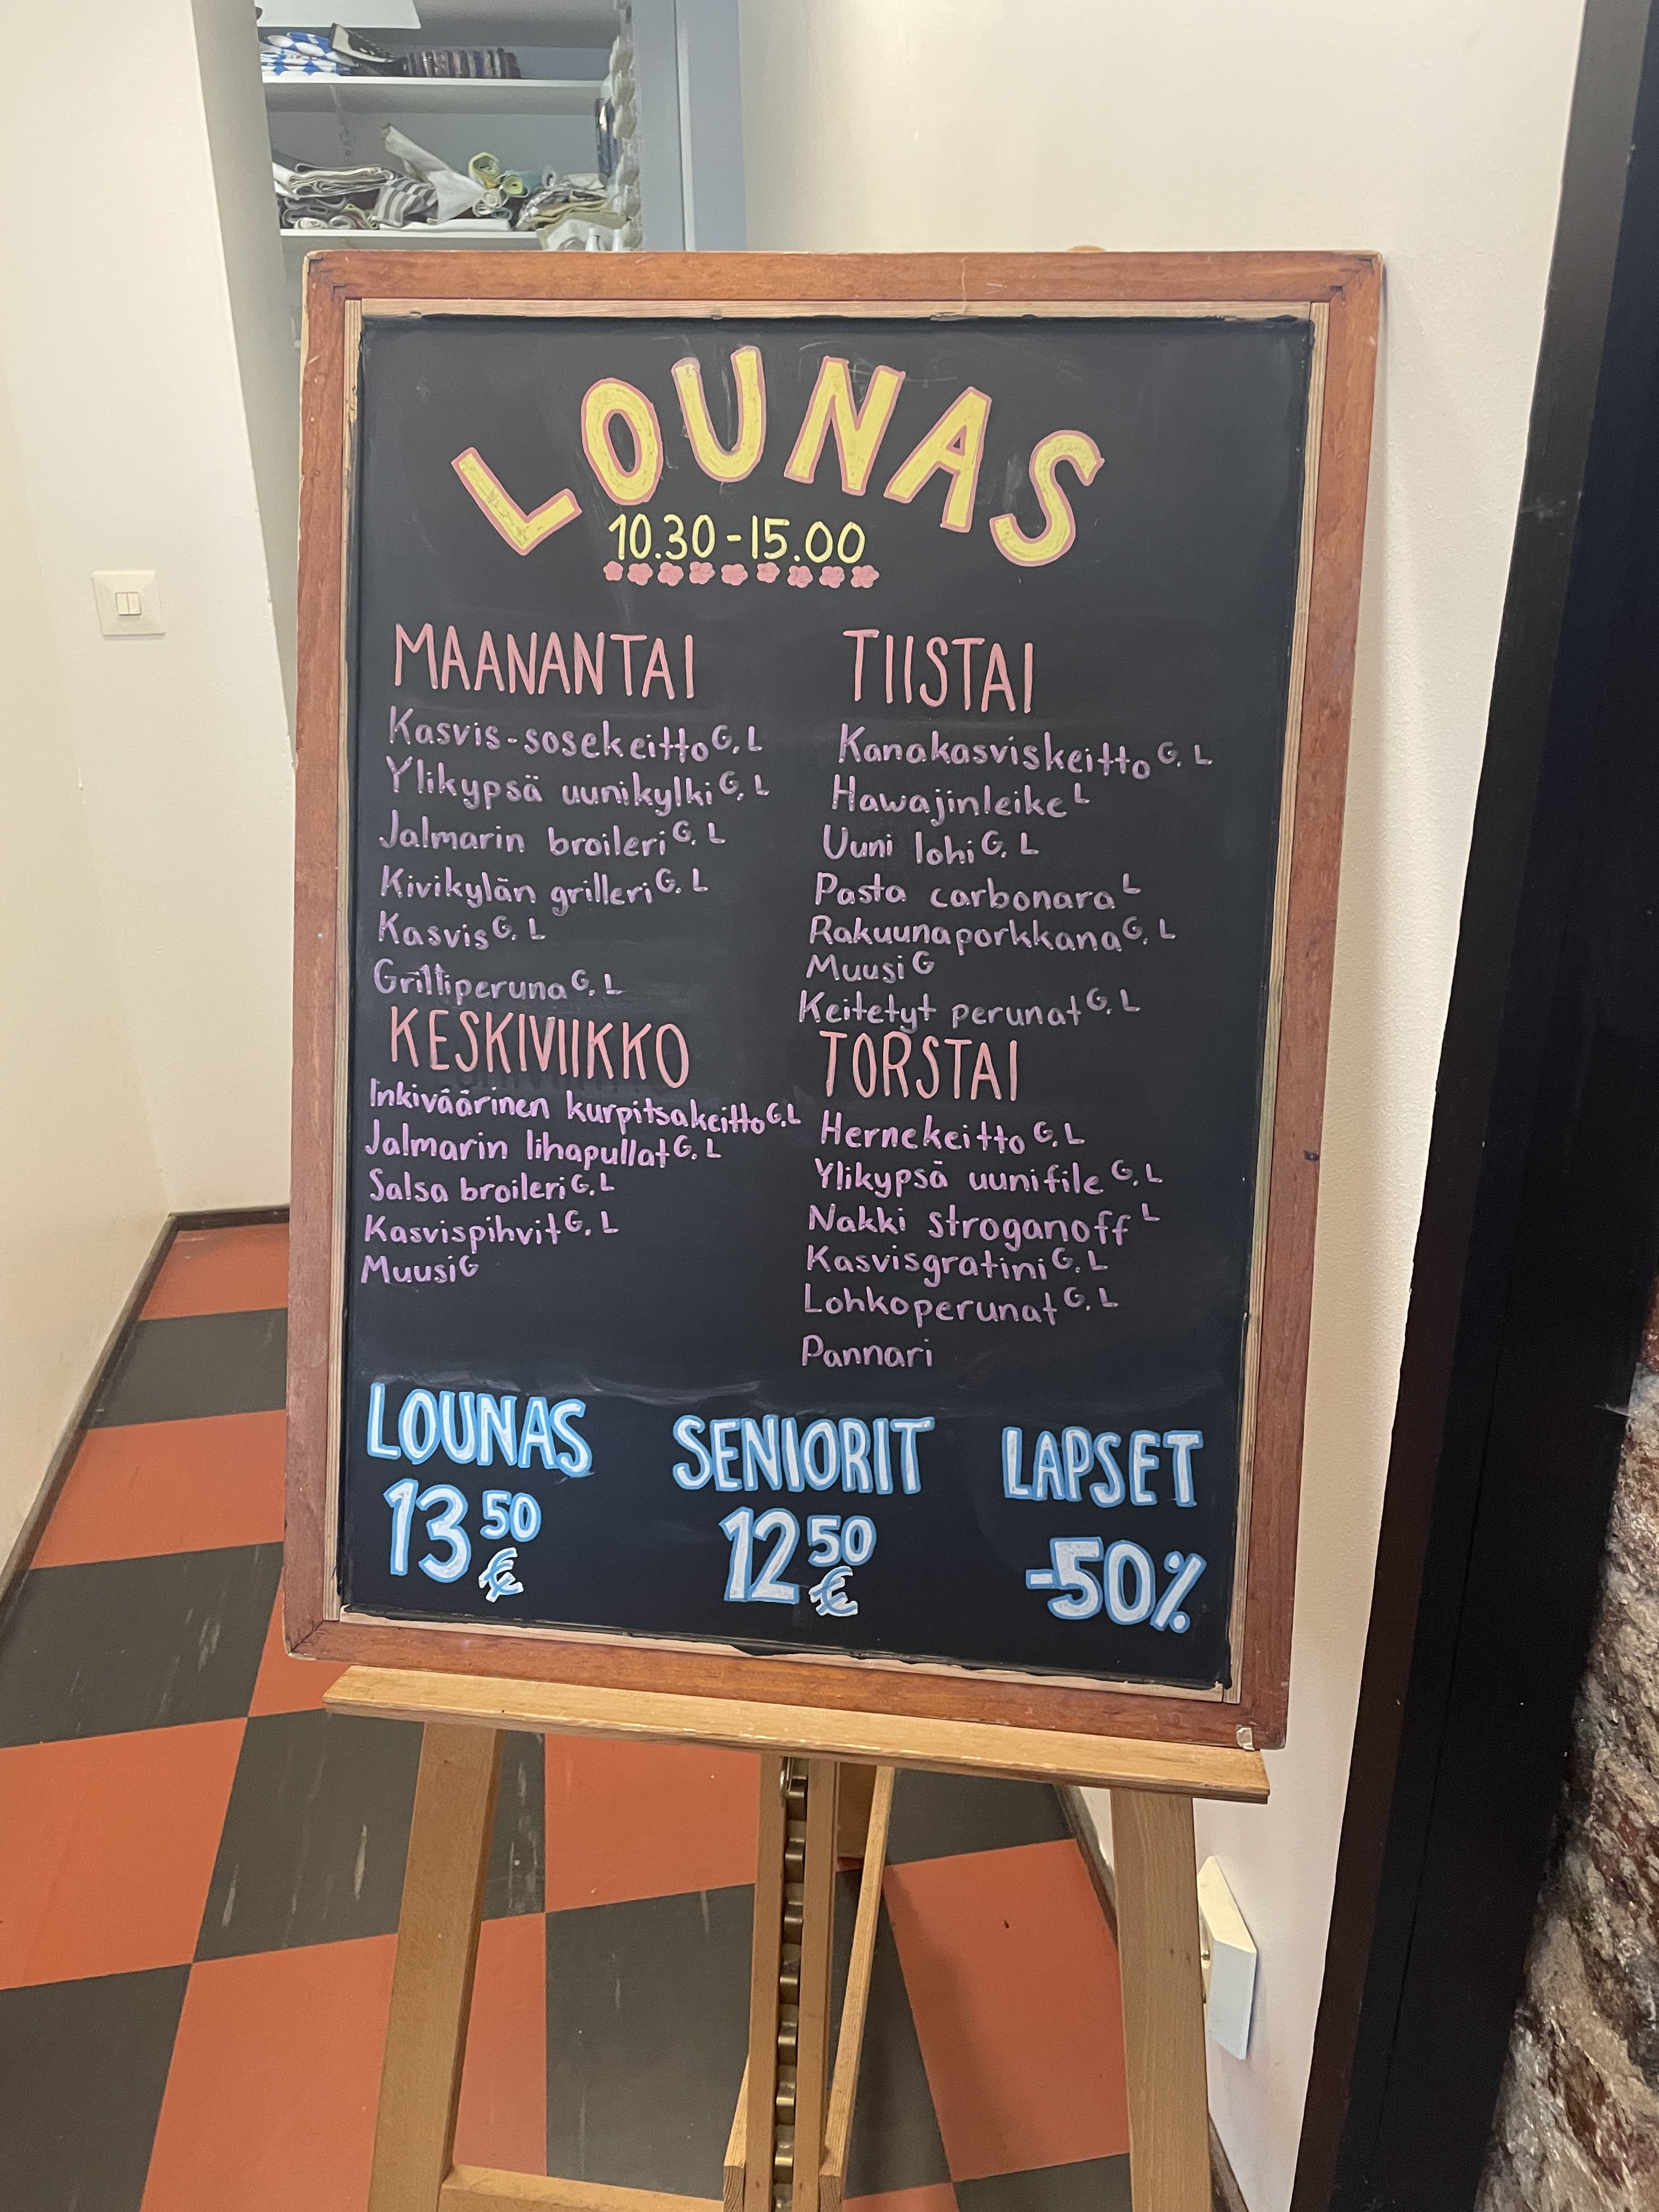 LOUNAS
10.30-15.00
MAANANTAI
Kasvis-sosekeitto G, L
Ylikypsä uunikylki G, L
Jalmarin broileri G, L
Kivikylän grilleri G, L
Kasvis G, L
Grilliperuna G, L
TIISTAI
Kanakasviskeitto G, L
Hawajinleike L
Uuni lohi G, L
Pasta carbonara L
Rakuunaporkkana G, L
Muusi G
Keitetyt perunat G, L
KESKIVIIKKO
Inkiväärinen kurpitsakeitto G, L
Jalmarin lihapullat G, L
Salsa broileri G, L
Kasvispihvit G, L
Muusi G
TORSTAI
Hernekeitto G, L
Ylikypsä uunifile G, L
Nakki stroganoff L
Kasvisgratini G, L
Lohkoperunat G, L
Pannari
LOUNAS
13 50 €
SENIORIT
12 50 €
LAPSET
-50%